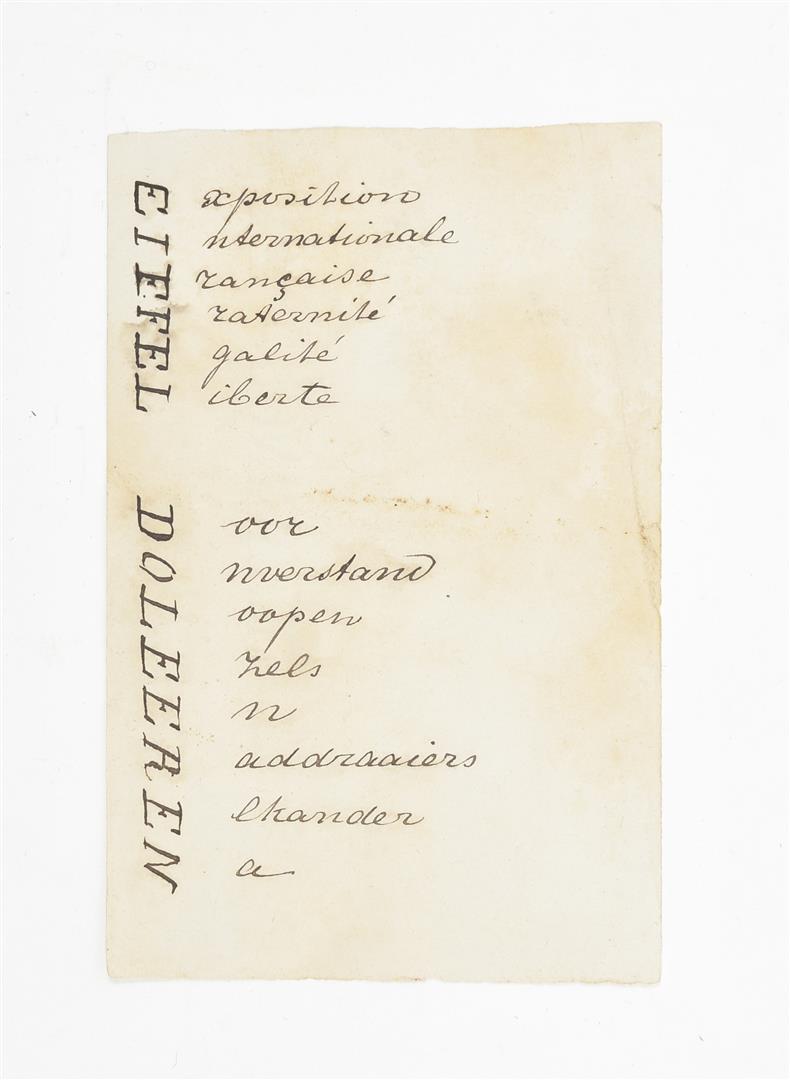 EIFFEL
xposition
nternationale
rançaise
raternité
galité
iberte
DOLEEREN
oor
nverstand
oopen
zels
n
addraaiers
lkander
a